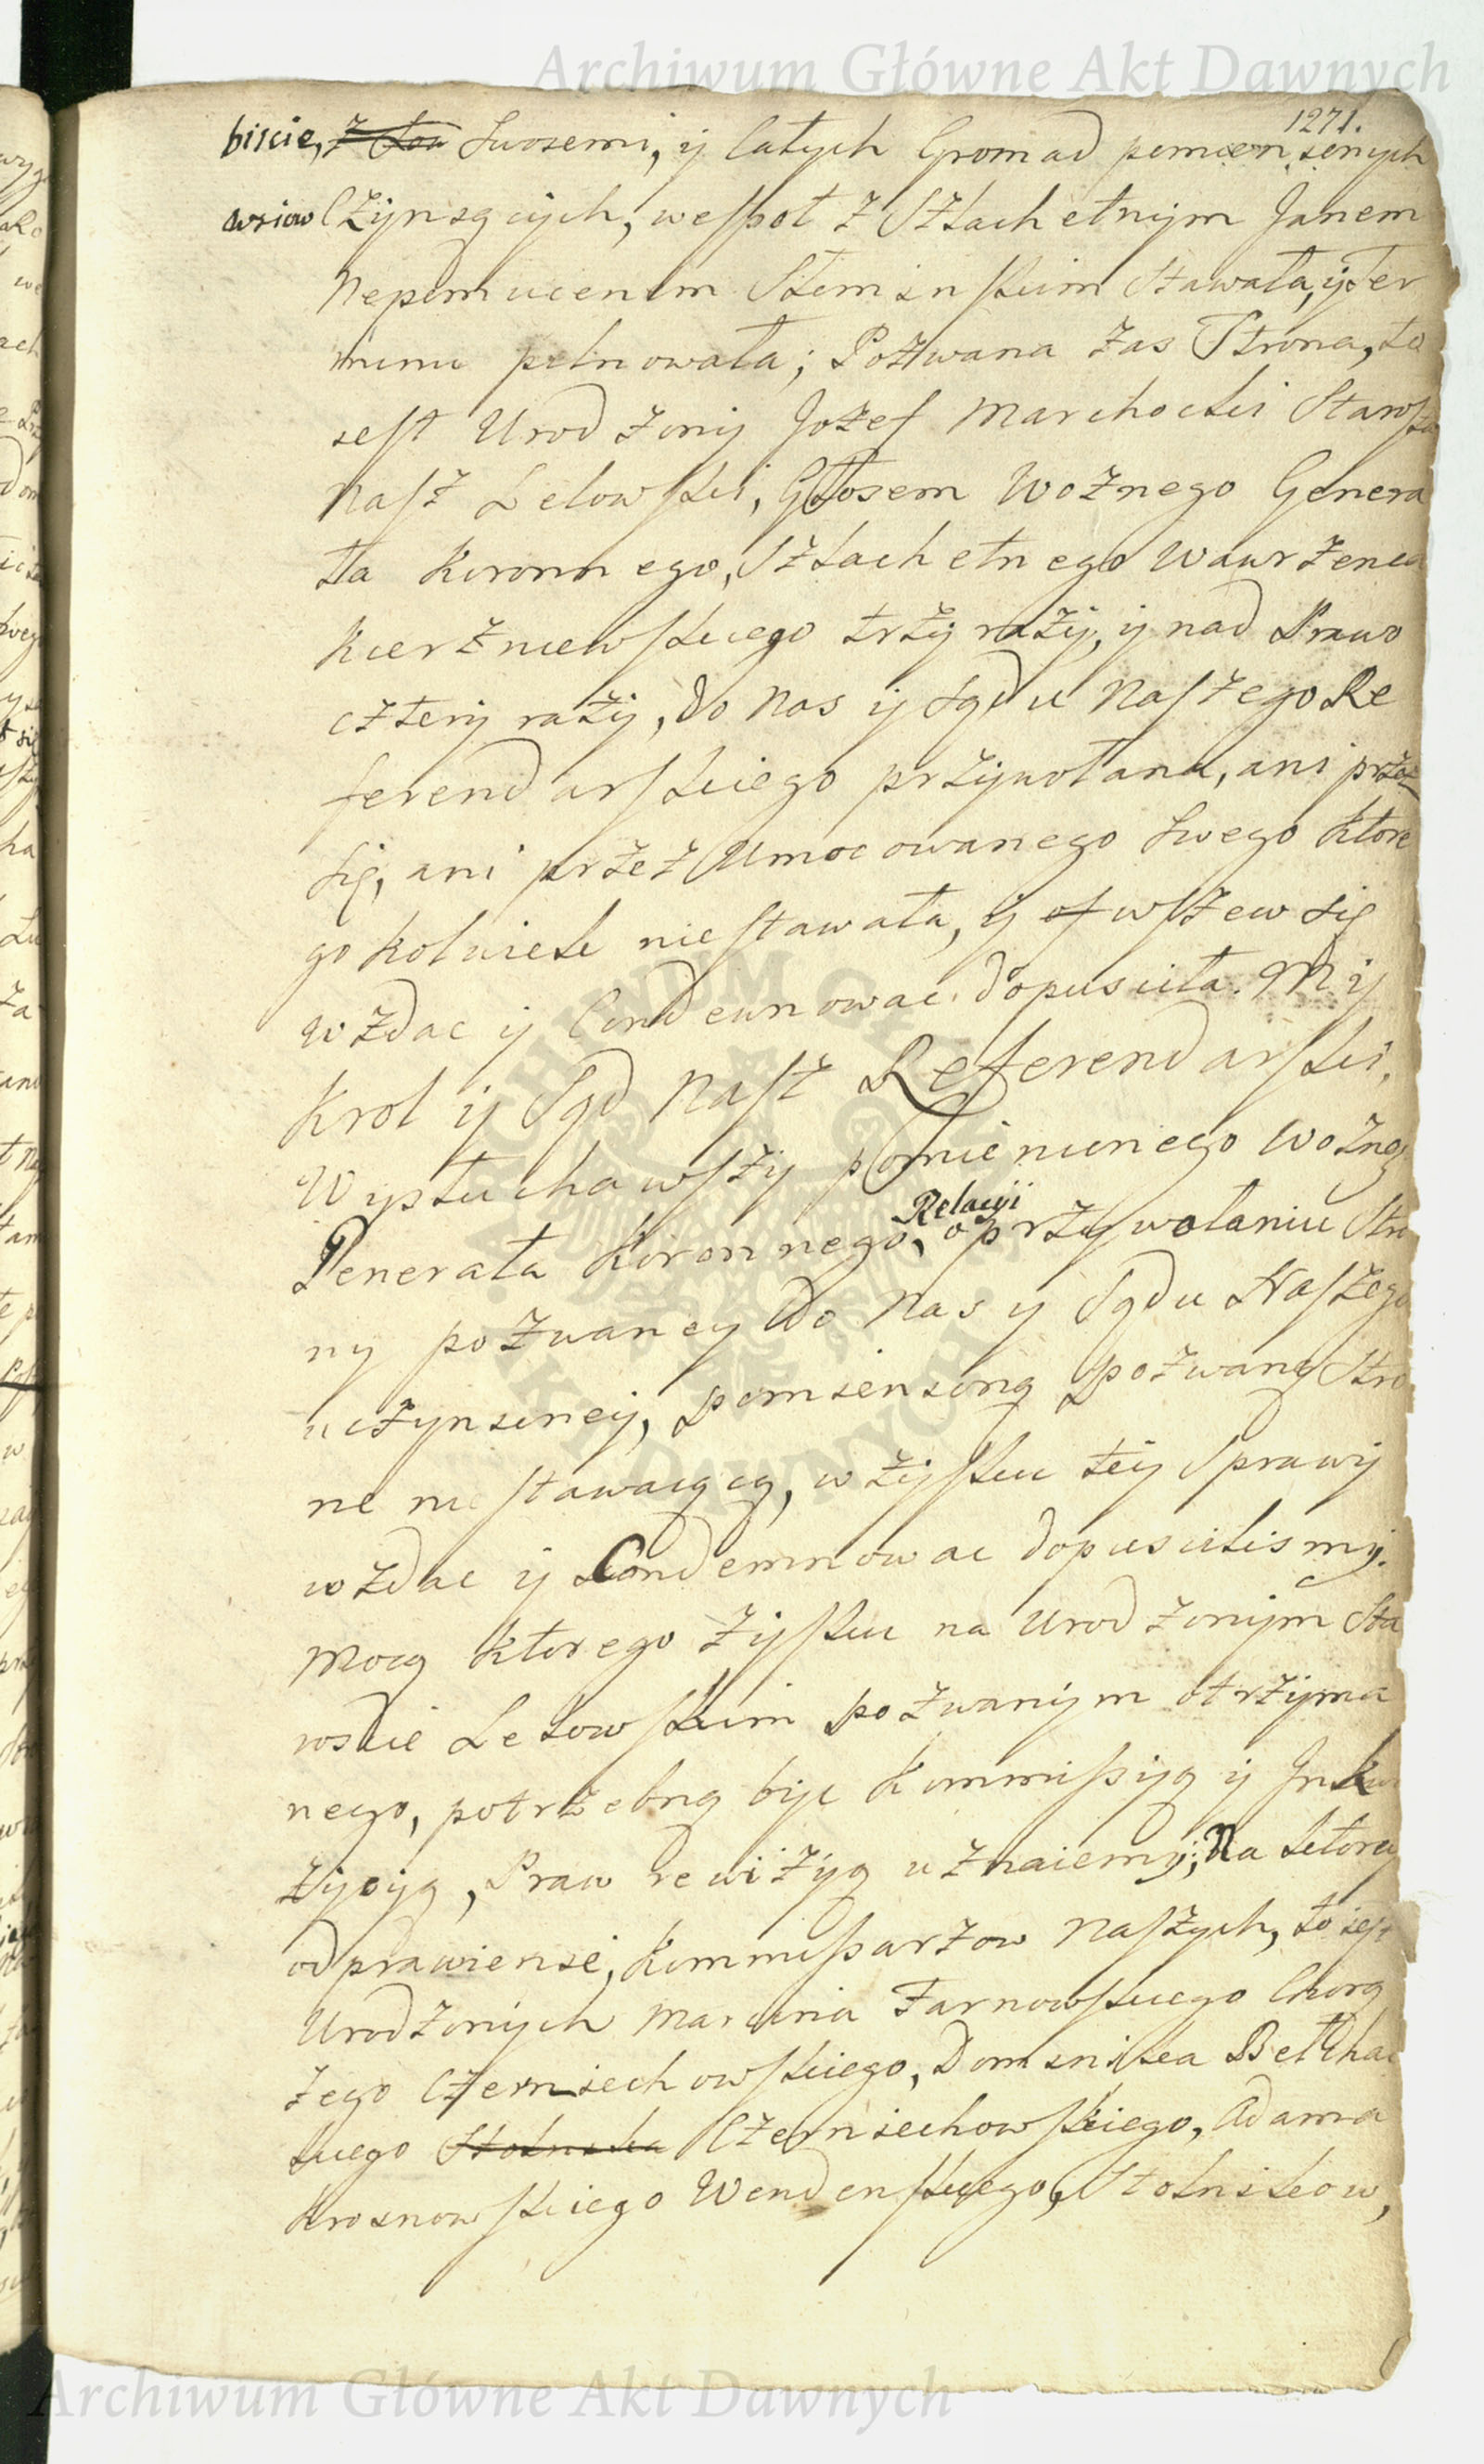 Archiwum Główne Akt Dawnych
1271.
biscie, swoiemi, y całych Gromad pomienionych
wsiow Czyniących, wespoł z Szlachetnym Janem
Nepomucenem Słominskim Stawała, y Ter
minu pilnowała; Pozwana zas Strona, to
iest Urodzony Jozef Marchocki Starosta
Nasz Lelowski, Głosem Woznego Genera
ła Koronnego, Szlachetnego Wawrzenca
Kierzniewskiego trzy razy, y nad Prawo
cztery razy, do Nas y Sądu Naszego Re
ferendarskiego przywołana, ani przez
się, ani przez Umocowanego swego ktore
gokolwiek niestawała, y owszew się
wzdac y Condemnowac dopusciła. My
Krol y Sąd Nasz Referendarski,
Wysłuchawszy pomienionego Wozneg
Generała Koronnego, Relacyi o przywołaniu Stro
ny pozwaney do Nas y Sądu Naszego
uczynioney, pomienioną pozwaną Stro
ne niestawaiącą, w zysku tey Sprawy
wzdac y Condemnowac dopuscilismy.
Mocą ktorego zysku na Urodzonym Sta
roscie Lelowskim pozwanym otrzyma
nego, potrzebną byc Kommissyą y Inkwi
zycyą, Praw rewizyą uznaiemy; Na ktorey
odprawienie, Kommissarzow Naszych, to iest
Urodzonych Marcina Tarnowskiego Chorą
zego Czerniechowskiego, Dominika Bełchac
kiego Stolnika Czerniechowskiego, Adama
Krosnowskiego Wendenskiego, Stolnikow,
Archiwum Główne Akt Dawnych